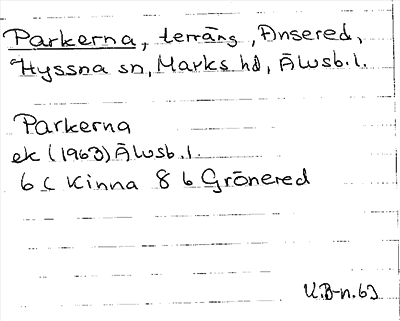 Parkerna, terräng, Ånsered,
Hyssna sn, Marks hd, Älvsb. l.
Parkerna
ek (1963) Älvsb. l.
6 C Kinna 8 b Grönered
U.B-n. 63